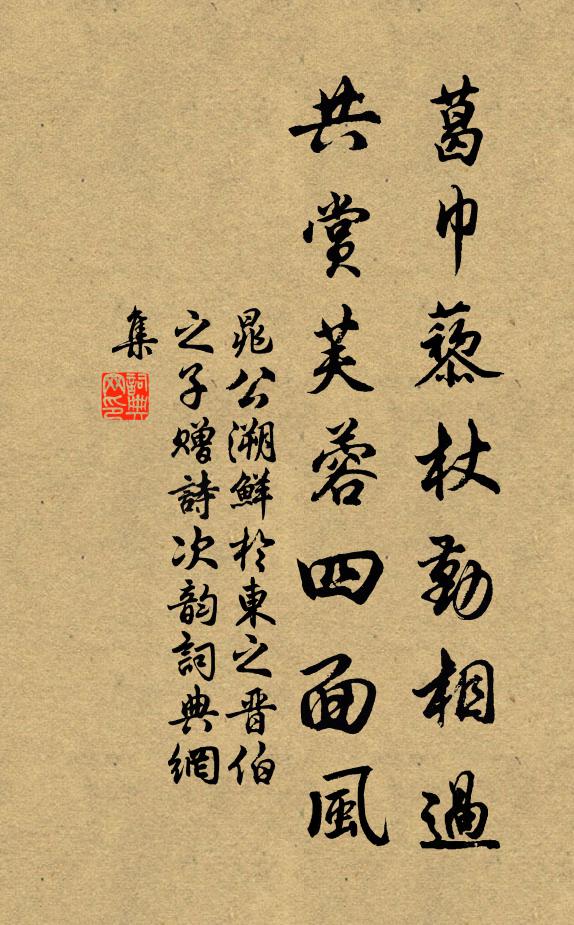 葛巾藜杖勤相過
共賞芙蓉四面風
晁公溯鮮於東之晋伯
之子贈詩次韵詞典網
集
詞典網印